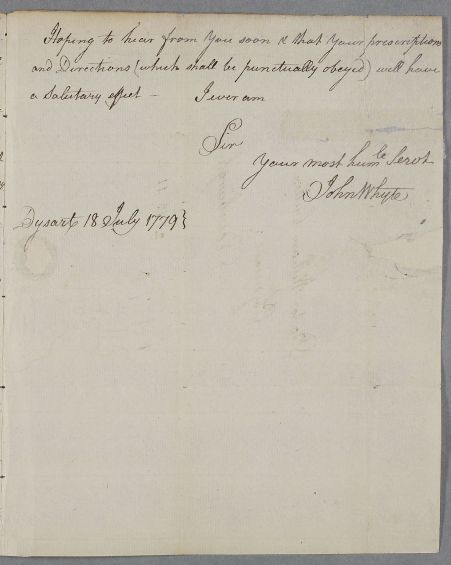 Hoping to hear from You soon & that Your prescriptions
and Directions (which shall be punctually obeyed) will have
a Salutary effect — I ever am
Sir
Your most hum.le Servt
John Whyte
Dysart 18 July 1779}